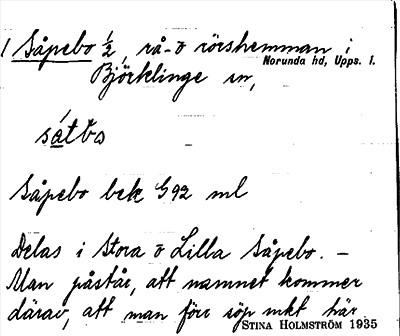 1 Såpebo ½, rå- o rörshemman i
Norunda hd, Upps. l.
Björklinge sn,
Såpebo bek G92 ml
Delas i Stora o Lilla Såpebo. –
Man påstår, att namnet kommer
därav, att man förr söp mkt här.
STINA HOLMSTRÖM 1935